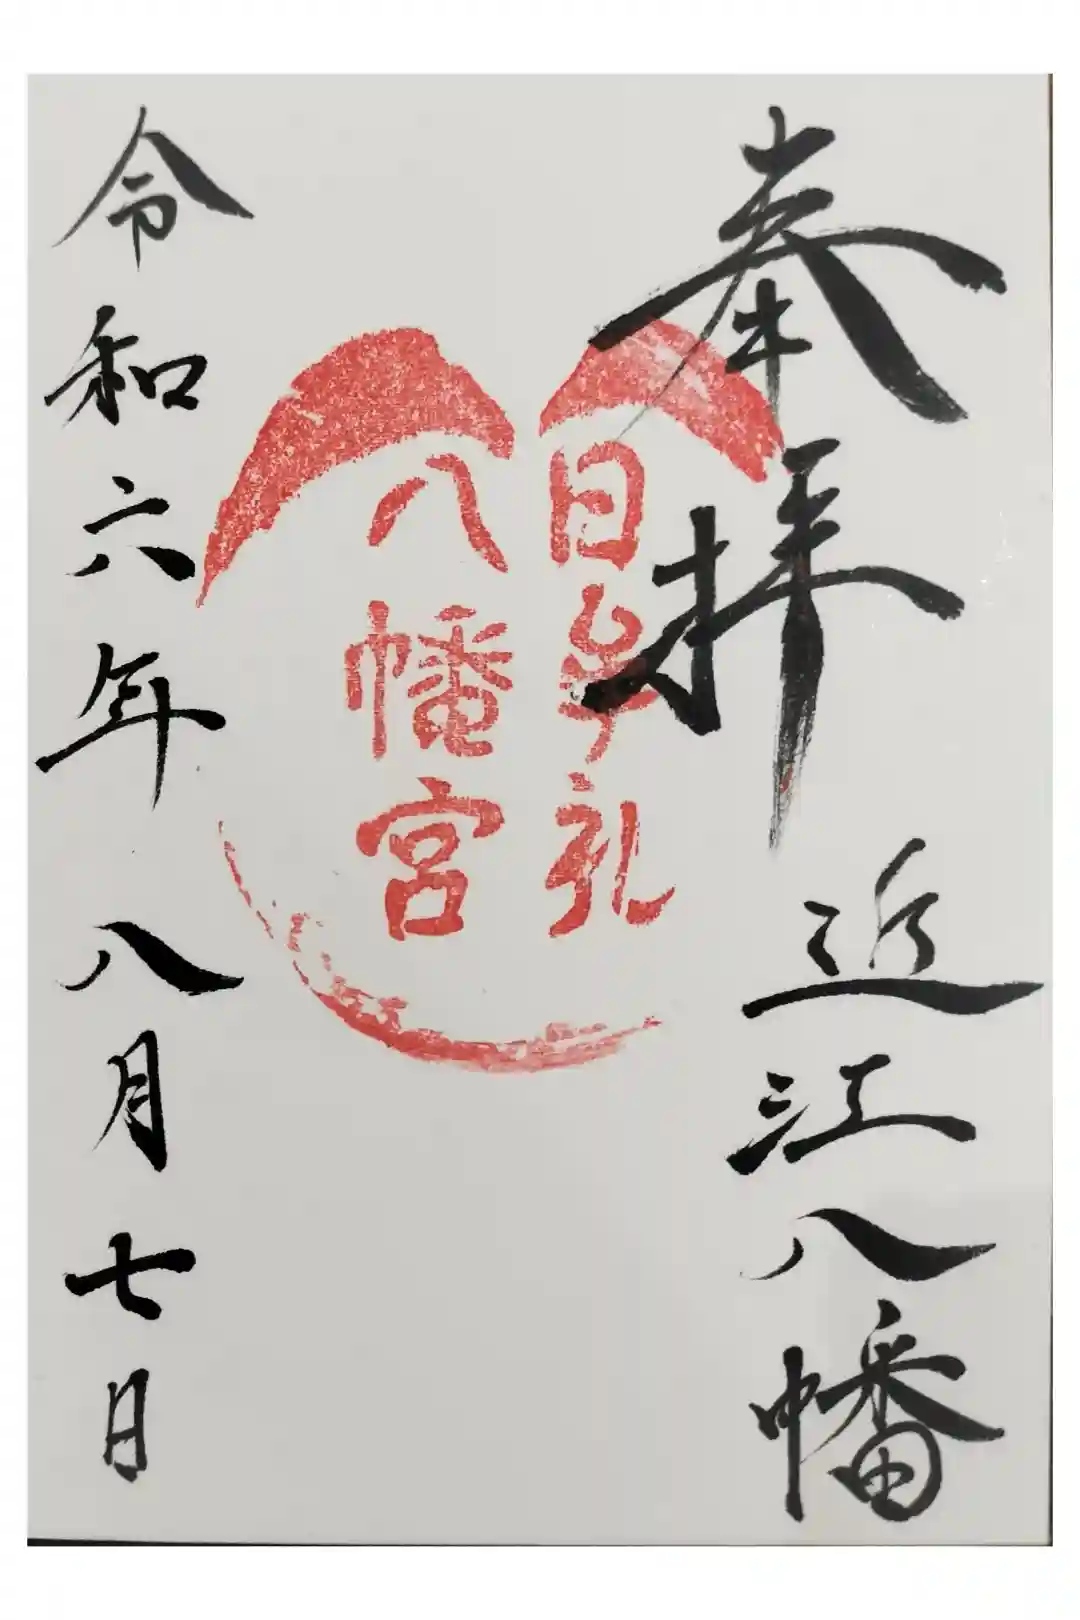 奉拝
近江八幡
日牟礼
八幡宮
令和六年八月七日